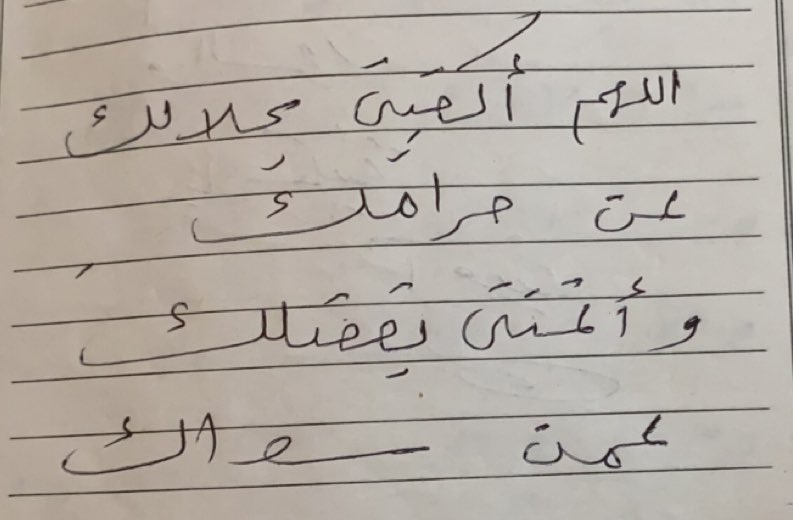 اللهم أكفني بحلالك
عن حرامك
وأغنني بفضلك
عمن سواك